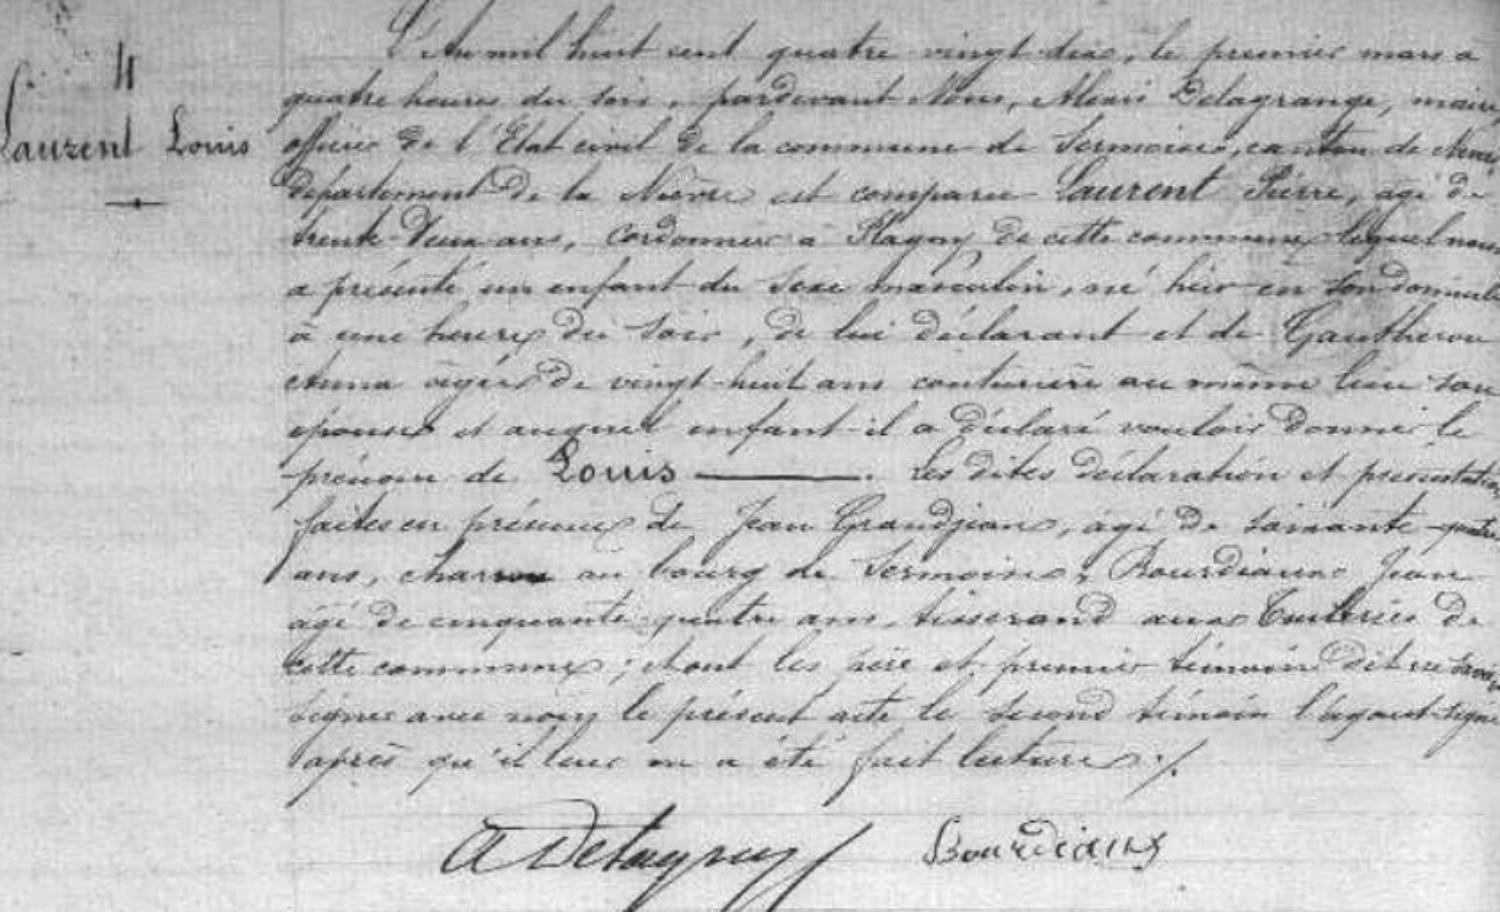 4
Laurent Louis
L'An mil huit cent quatre vingt dix, le premier mars a
quatre heures du soir, pardevant Nous, Alexis Delagrange, maire,
officier de l'Etat civil de la commune de Sermoise, canton de Nevers
département de la Nièvre est comparu Laurent Pierre, agé de
trente-Deux ans, cordonnier a Plagny de cette commune lequel nous
a présenté un enfant du sexe masculin, né hier en son domicile
à une heure du soir, de lui déclarant et de Gautheron
Anna agée de vingt-huit ans couturière au même lieu son
épouse et auquel enfant il a déclaré vouloir donner le
prénom de Louis ———. Les dites déclaration et présentation
faites en présence de Jean Grandjean, agé de soixante-quatre
ans, charron au bourg de Sermoise, Bourdiaux Jean
agé de cinquante-quatre ans, tisserand aux Tuileries de
cette commune; et ont les père et premier témoin dit ne savoir
signer avec nous le présent acte le second témoin l'ayant signé
après qu'il leur en a été fait lecture ./.
A Delagrange Bourdiaux